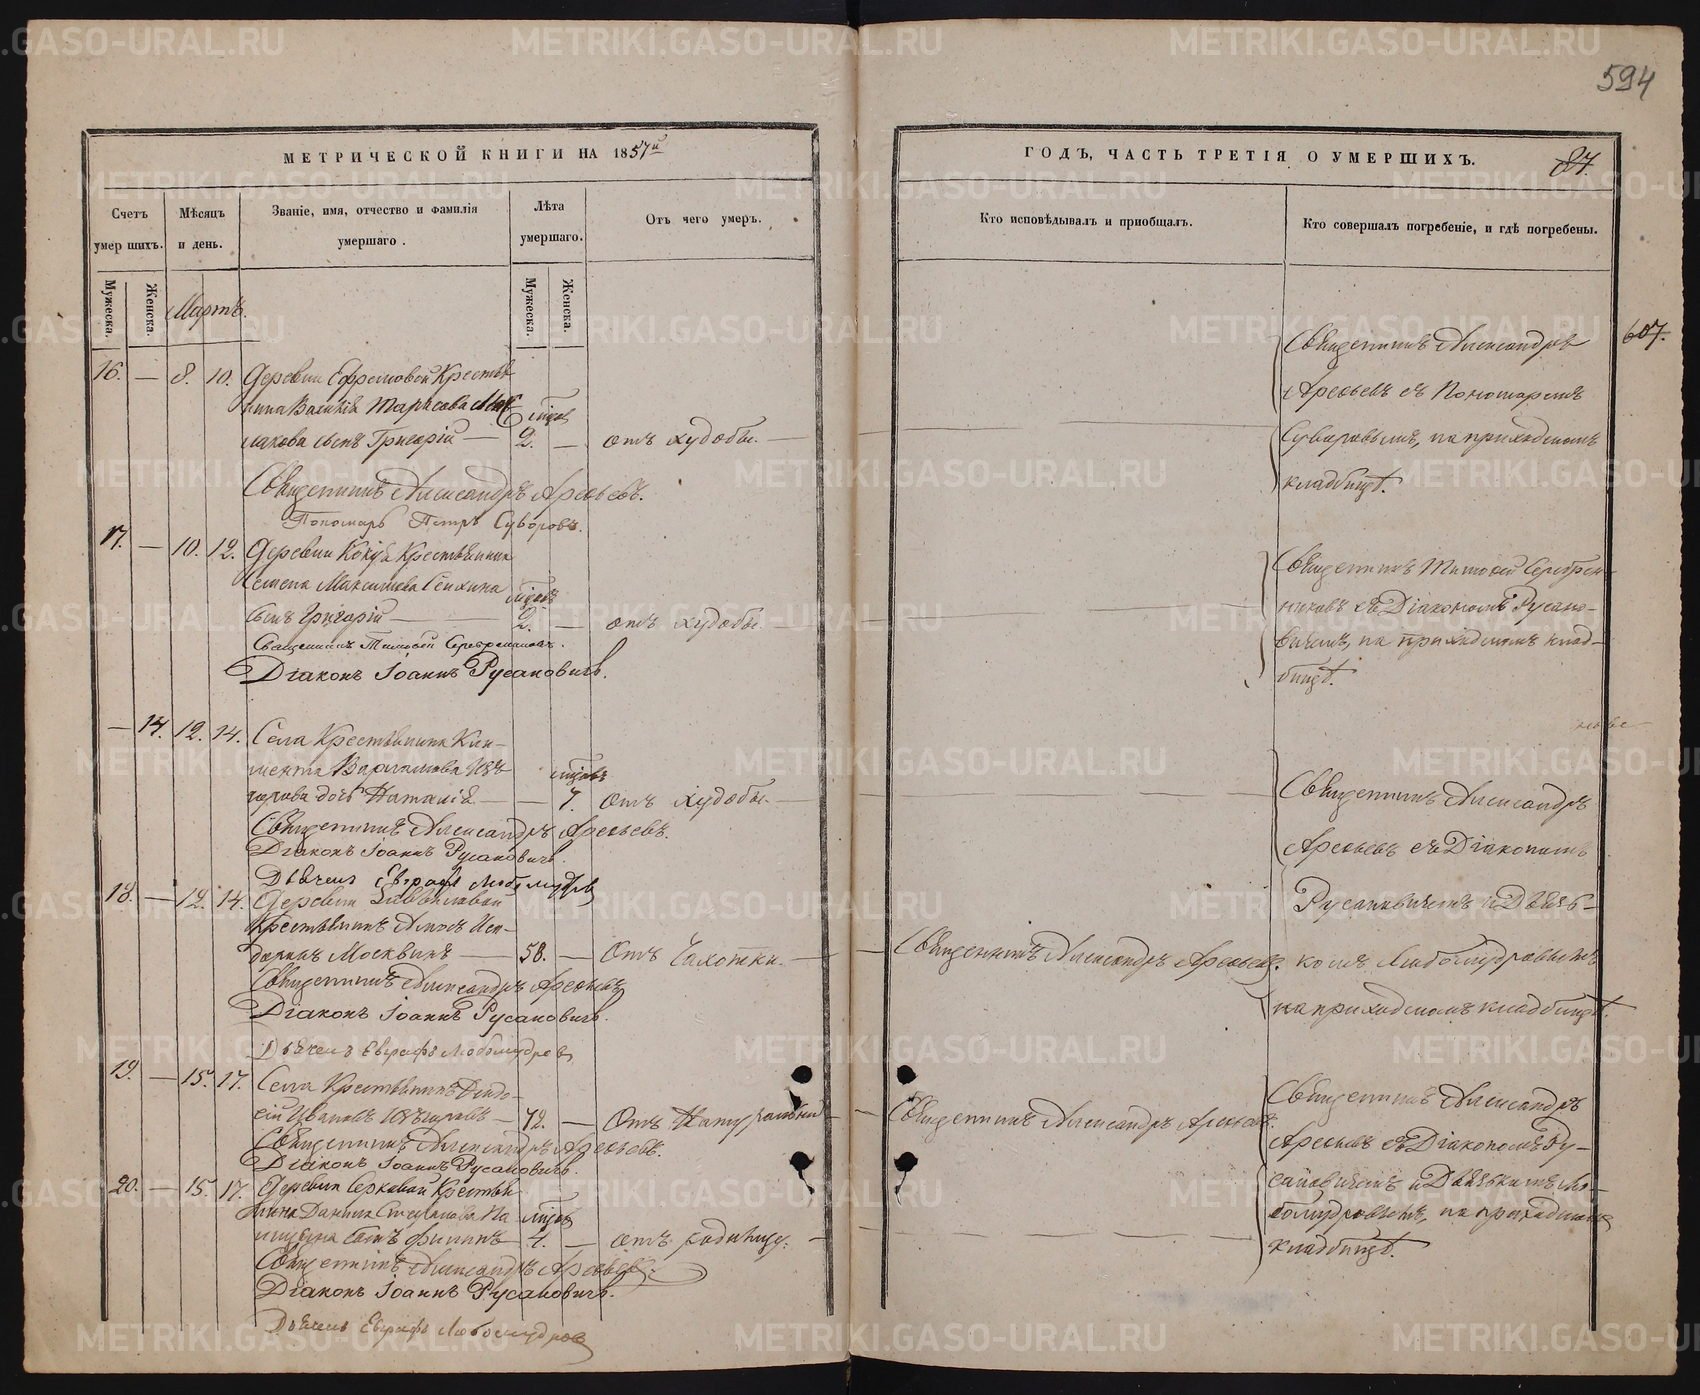 594
МЕТРИЧЕСКОЙ КНИГИ НА 1857й
Счетъ умер шихъ.
Мѣсяцъ и день.
Званіе, имя, отчество и фамилія умершаго.
Лѣта умершаго.
Отъ чего умеръ.
Мужеска.
Женска.
Мартъ.
Мужеска.
Женска.
16. — 8. 10. Деревни Ефремовой Крестья-
нина Василія Тарасова
сынъ Григорій — 2. — отъ худобы.
Священникъ Александръ Арефьевъ.
Пономарь Петръ Суворовъ.
17. — 10. 12. Деревни Кокуя Крестьянина
Семена Максимова
сынъ Григорій — 2. — отъ худобы.
Священникъ Тимофей Серебренниковъ.
Діаконъ Іоаннъ Русановичъ.
— 14. 12. 14. Села Крестьянина Кли-
мента Варламова Изъ-
дочь Наталія — — 7. отъ худобы.
Священникъ Александръ Арефьевъ.
Діаконъ Іоаннъ Русановичъ.
Дьячекъ Евграфъ Любомудровъ
18. — 12. 14. Деревни
Крестьянинъ
Москвинъ — 58. — Отъ Чахотки.
Священникъ Александръ Арефьевъ
Діаконъ Іоаннъ Русановичъ.
Дьячекъ Евграфъ Любомудровъ
19. — 15. 17. Села Крестьянинъ
Ивановъ — 72. — Отъ Натуральной
Священникъ Александръ Арефьевъ.
Діаконъ Іоаннъ Русановичъ.
20. — 15. 17. Деревни Серковой Крестья-
нина Данила Степанова
сынъ Филиппъ — 4. — отъ родимцу.
Священникъ Александръ Арефьевъ.
Діаконъ Іоаннъ Русановичъ.
Дьячекъ Евграфъ Любомудровъ
ГОДЪ, ЧАСТЬ ТРЕТІЯ О УМЕРШИХЪ.
87.
Кто исповѣдывалъ и пріобщалъ.
Кто совершалъ погребеніе, и гдѣ погребены.
607.
Священникъ Александръ
Арефьевъ съ Пономаремъ
Суворовымъ, на приходскомъ
кладбищѣ.
Священникъ Тимофей Серебрен-
никовъ съ Діакономъ Русано-
вичемъ, на приходскомъ клад-
бищѣ.
Священникъ Александръ
Арефьевъ съ Діакономъ
Русановичемъ и Дьяч-
Священникъ Александръ Арефьевъ. комъ Любомудровымъ
на приходскомъ кладбищѣ.
Священникъ Александръ
Священникъ Александръ Арефьевъ.
Арефьевъ съ Діакономъ Ру-
сановичемъ и Дьячькомъ Лю-
бомудровымъ, на приходскомъ
кладбищѣ.
METRIKI.GASO-URAL.RU